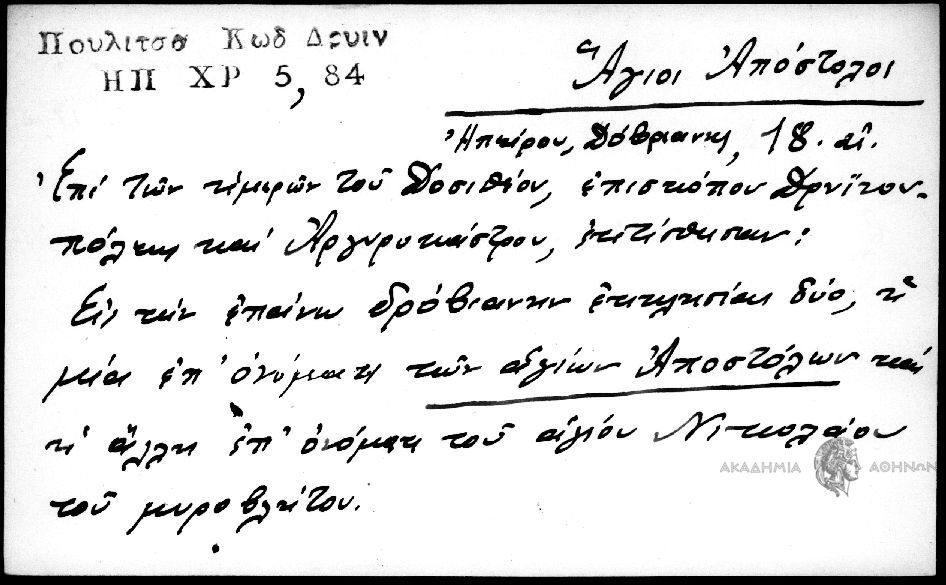 Πουλιτσα Κωδ Δρυιν
ΗΠ ΧΡ 5, 84
Ἅγιοι Ἀπόστολοι
Ἠπείρου, Δόβριανης, 18. αἰ.
Ἐπί τῶν ἡμερῶν τοῦ Δοσιθέου, ἐπισκόπου Δρυϊνου-
πόλεως καί Ἀργυροκάστρου, ἐκτίσθησαν:
Εἰς τήν ἐπάνω δρόβιανην ἐκκλησίαι δύο, ἡ
μία ἐπ' ὀνόματι τῶν ἁγίων Ἀποστόλων καί
ἡ ἄλλη ἐπ' ὀνόματι τοῦ ἁγίου Νικολάου
τοῦ μυροβλήτου.
ΑΚΑΔΗΜΙΑ ΑΘΗΝΩΝ